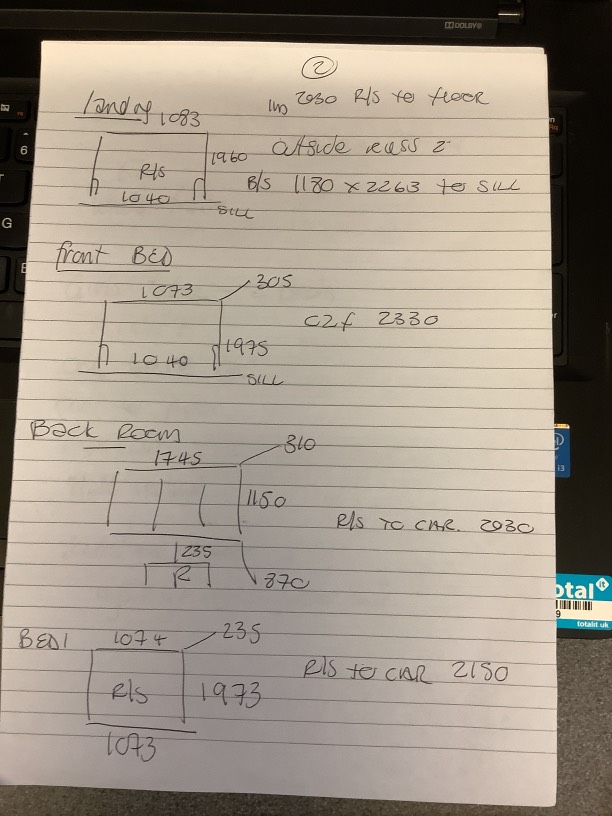 DOLBY
2
Landing
1083
2030 R/s to floor
R/s
1960
outside recess =
1040
SILL
B/s 1180 x 2263 to SILL
front BED
1073
305
C2f 2330
1040
1975
SILL
Back Room
1745
310
1150
R/s TO CAR. 2030
235
R
870
BED1
1074
235
R/s
1973
R/s to CAR 2150
1073
6
G
i3
otal it
9
totalit uk